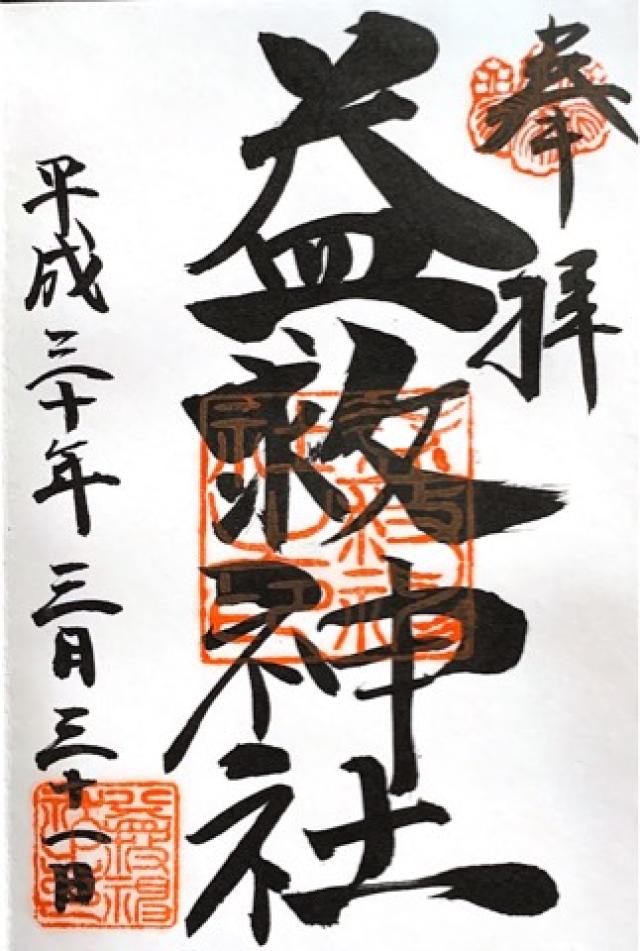 奉拝
益救神社
平成三十年三月三十一日